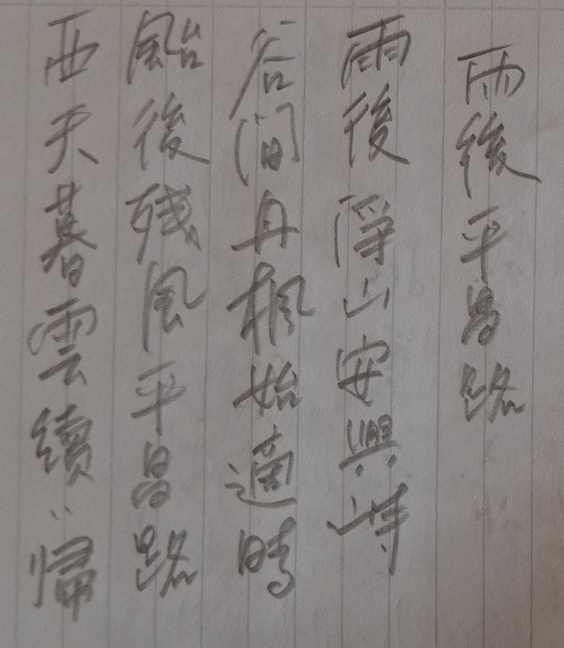 雨後平昌路
雨後淨山安興寺
谷間丹楓始適時
颱後残風平昌路
西天暮雲續々歸